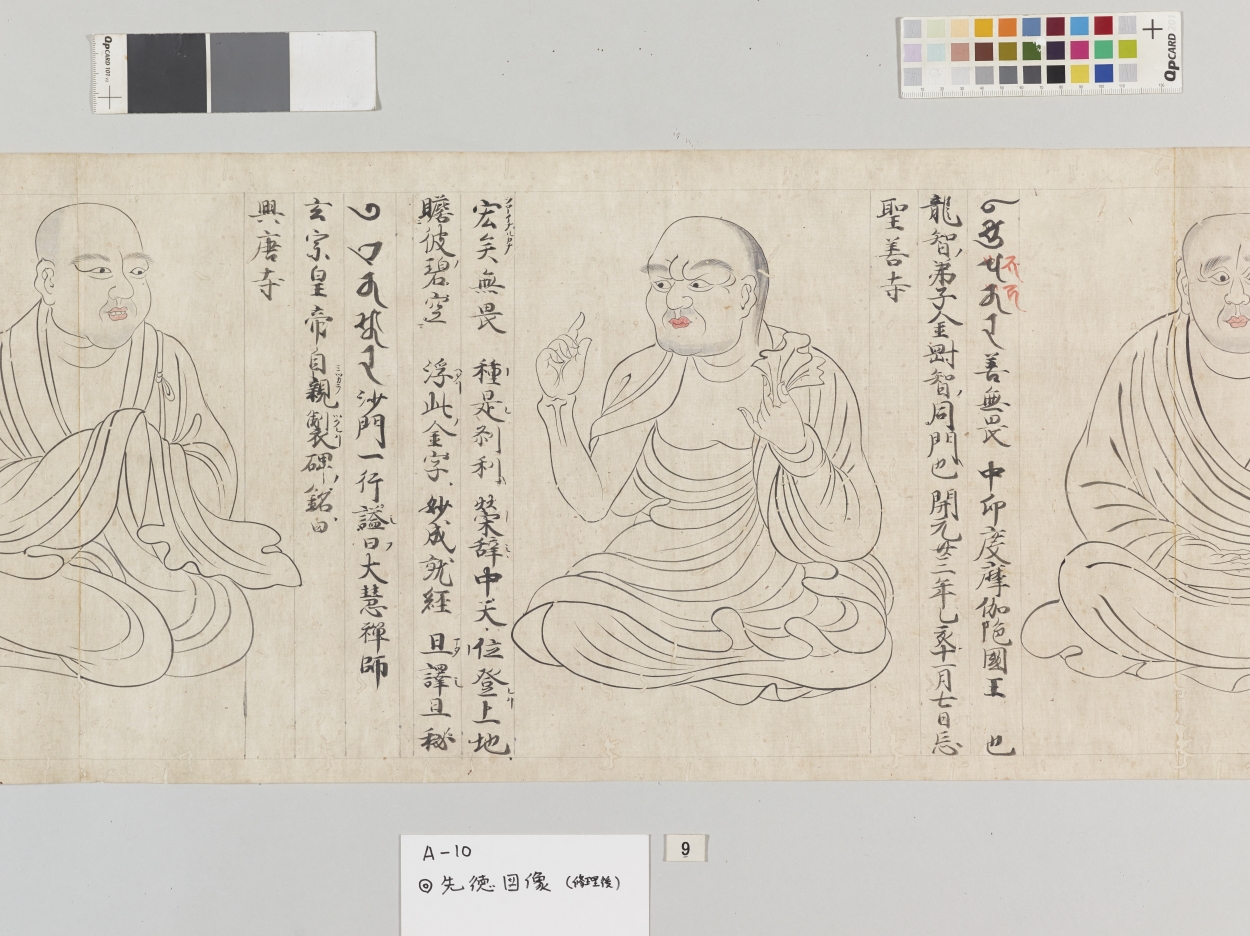 善無畏 中印度摩伽陁國王 也
龍智弟子金剛智同門也 開元廿三年乙亥十一月七日忌
聖善寺
宏矣無畏 種是刹利 榮辞中天 位登上地
瞻彼碧空 浮此金字 妙成就経 且譯且秘
沙門一行謚曰大慧禅師
玄宗皇帝自親製碑銘曰
興唐寺
QPCARD 101
QPCARD 201
A-10
◎先徳図像(修理後)
9